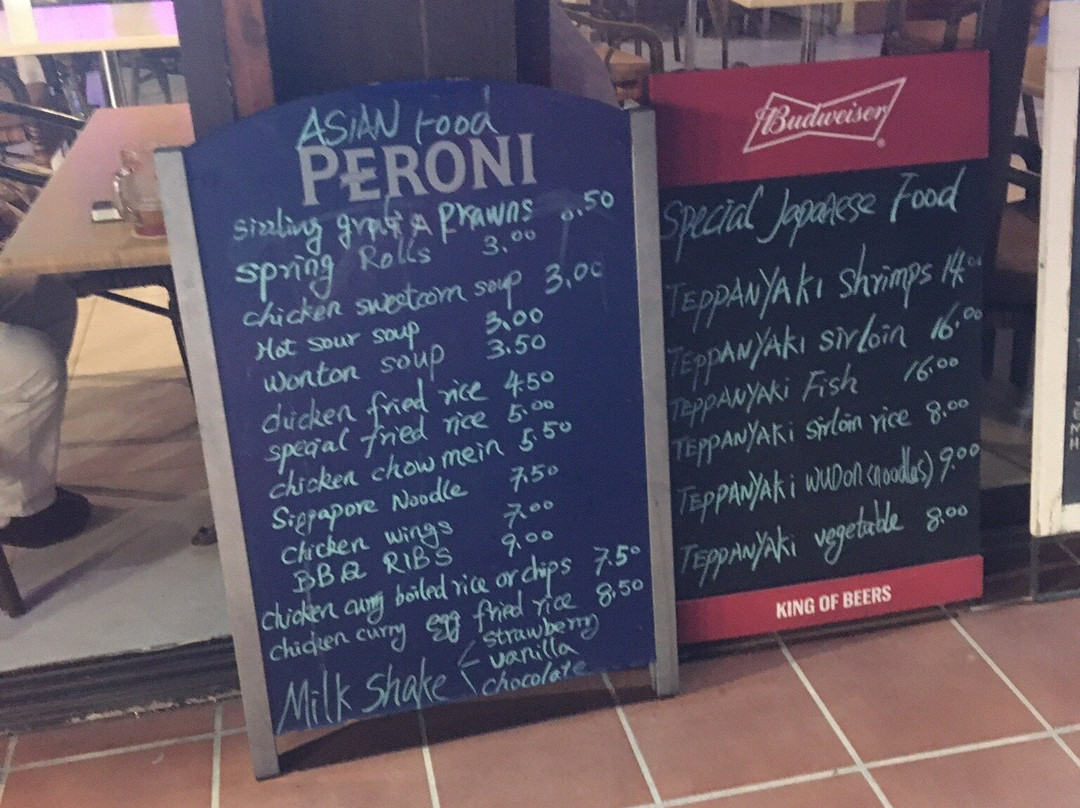 ASIAN Food
PERONI
Sizzling PRAWNS .50
Spring Rolls 3.00
chicken sweetcorn soup 3.00
Hot sour soup 3.00
wonton soup 3.50
chicken fried rice 4.50
special fried rice 5.00
chicken chow mein 5.50
Noodle 7.50
chicken wings 7.00
BBQ RIBS 9.00
chicken curry boiled rice or chips 7.50
chicken curry egg fried rice 8.50
Milk Shake < strawberry
vanilla
chocolate
Budweiser
Special Japanese Food
TEPPANYAKI Shrimps 14.00
TEPPANYAKI sirloin 16.00
TEPPANYAKI Fish 16.00
TEPPANYAKI sirloin rice 8.00
TEPPANYAKI WUDON (noodles) 9.00
TEPPANYAKI vegetable 8.00
KING OF BEERS